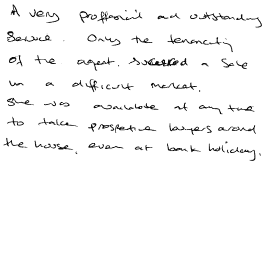 A very proffesional and outstanding
Service. Only the tenancity
of the agent, succeeded a sale
in a difficult market.
She was available at any time
to take prospective buyers around
the house, even at bank holiday.